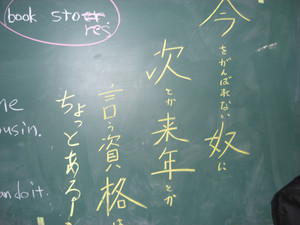 book stores
今をがんばれない奴に
次とか来年とか
言う資格は
ちょっとあるー
ousin.